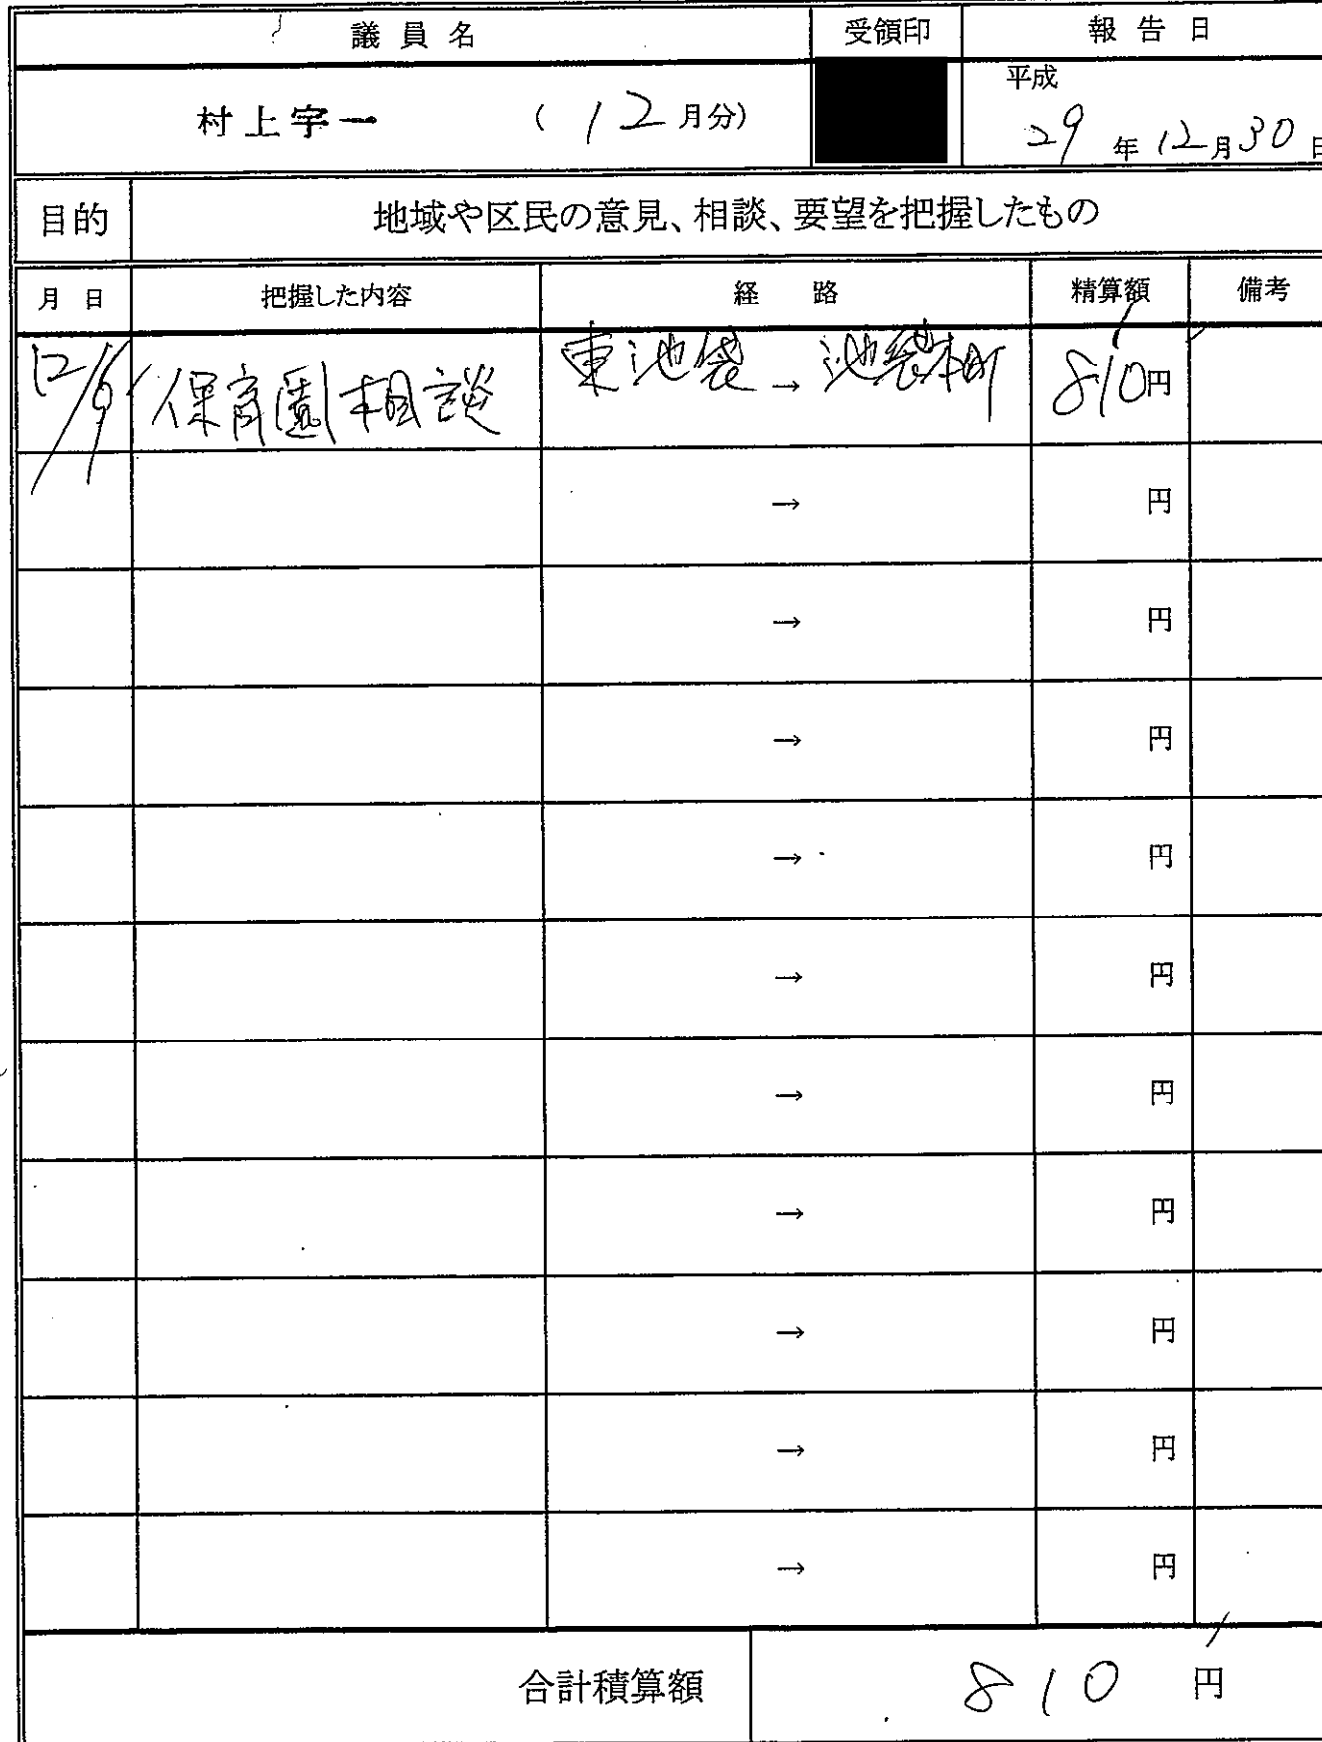 議員名 受領印 報告日
村上宇一 (12月分) 平成
29年12月30日
目的 地域や区民の意見、相談、要望を把握したもの
月日 把握した内容 経路 精算額 備考
12/9 保育園相談 東池袋→池袋本町 810円
→ 円
→ 円
→ 円
→ 円
→ 円
→ 円
→ 円
→ 円
→ 円
→ 円
合計積算額 810円